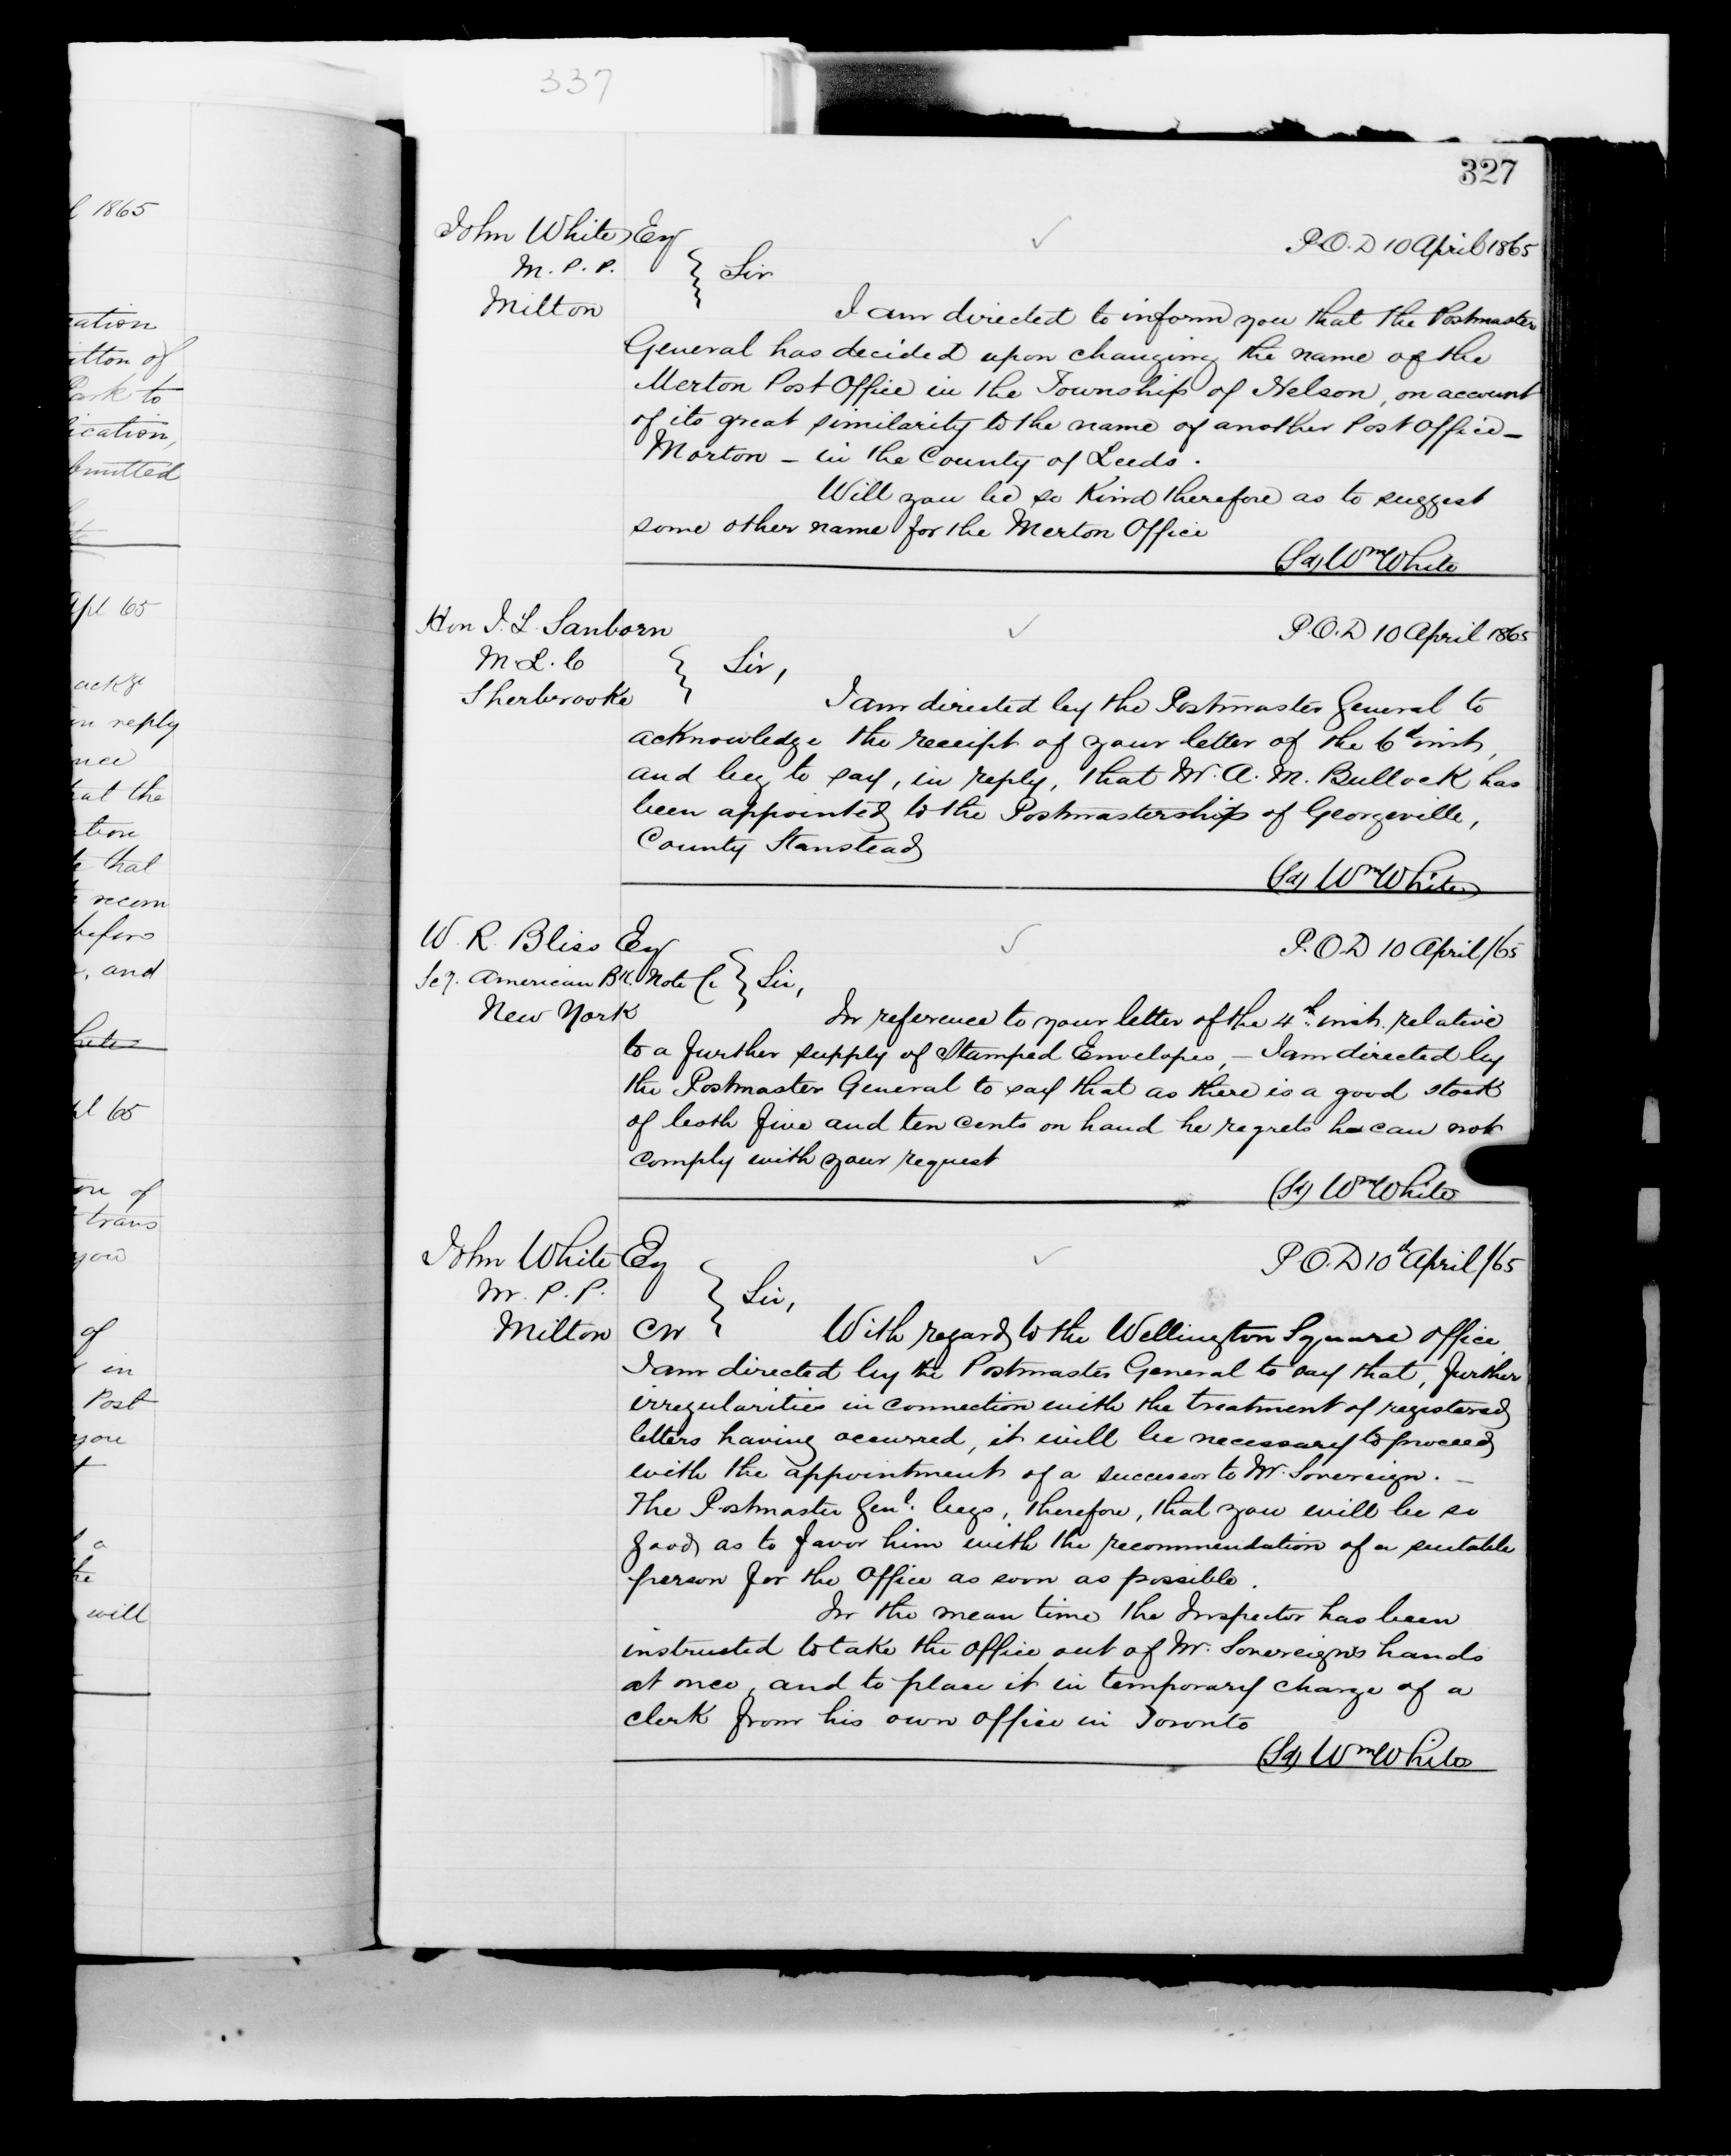 337
327
John White, Esq
M.P.P.
Milton
P.O.D 10 April 1865
Sir
I am directed to inform you that the Postmaster
General has decided upon changing the name of the
Merton Post Office in the Township of Nelson, on account
of its great similarity to the name of another Post Office –
Morton – in the County of Leeds.
Will you be so kind therefore as to suggest
some other name for the Merton Office
(Sd) Wm White
Hon J. L. Sanborn
M.L.C
Sherbrooke
P.O.D 10 April 1865
Sir,
I am directed by the Postmaster General to
acknowledge the receipt of your letter of the 6th inst,
and beg to say, in reply, that Mr. A. M. Bullock has
been appointed to the Postmastership of Georgeville,
County Stanstead
(Sd) Wm White
W. R. Bliss Esq
Secy. American Bk. Note Co
New York
P.O.D 10 April/65
Sir,
In reference to your letter of the 4th inst. relative
to a further supply of Stamped Envelopes, – I am directed by
the Postmaster General to say that as there is a good stock
of both five and ten cents on hand he regrets he can not
comply with your request
(Sd) Wm White
John White Esq
M.P.P.
Milton CW
P.O.D 10th April/65
Sir,
With regard to the Wellington Square office
I am directed by the Postmaster General to say that, further
irregularities in connection with the treatment of registered
letters having occurred, it will be necessary to proceed
with the appointment of a successor to Mr. Sovereign. –
The Postmaster Genl. begs, therefore, that you will be so
good as to favor him with the recommendation of a suitable
person for the Office as soon as possible.
In the mean time the Inspector has been
instructed to take the office out of Mr. Sovereign's hands
at once, and to place it in temporary charge of a
clerk from his own office in Toronto
(Sd) Wm White
1865
of
to
65
reply
the
that
and
65
of
trans
you
of
in
Post
you
a
will